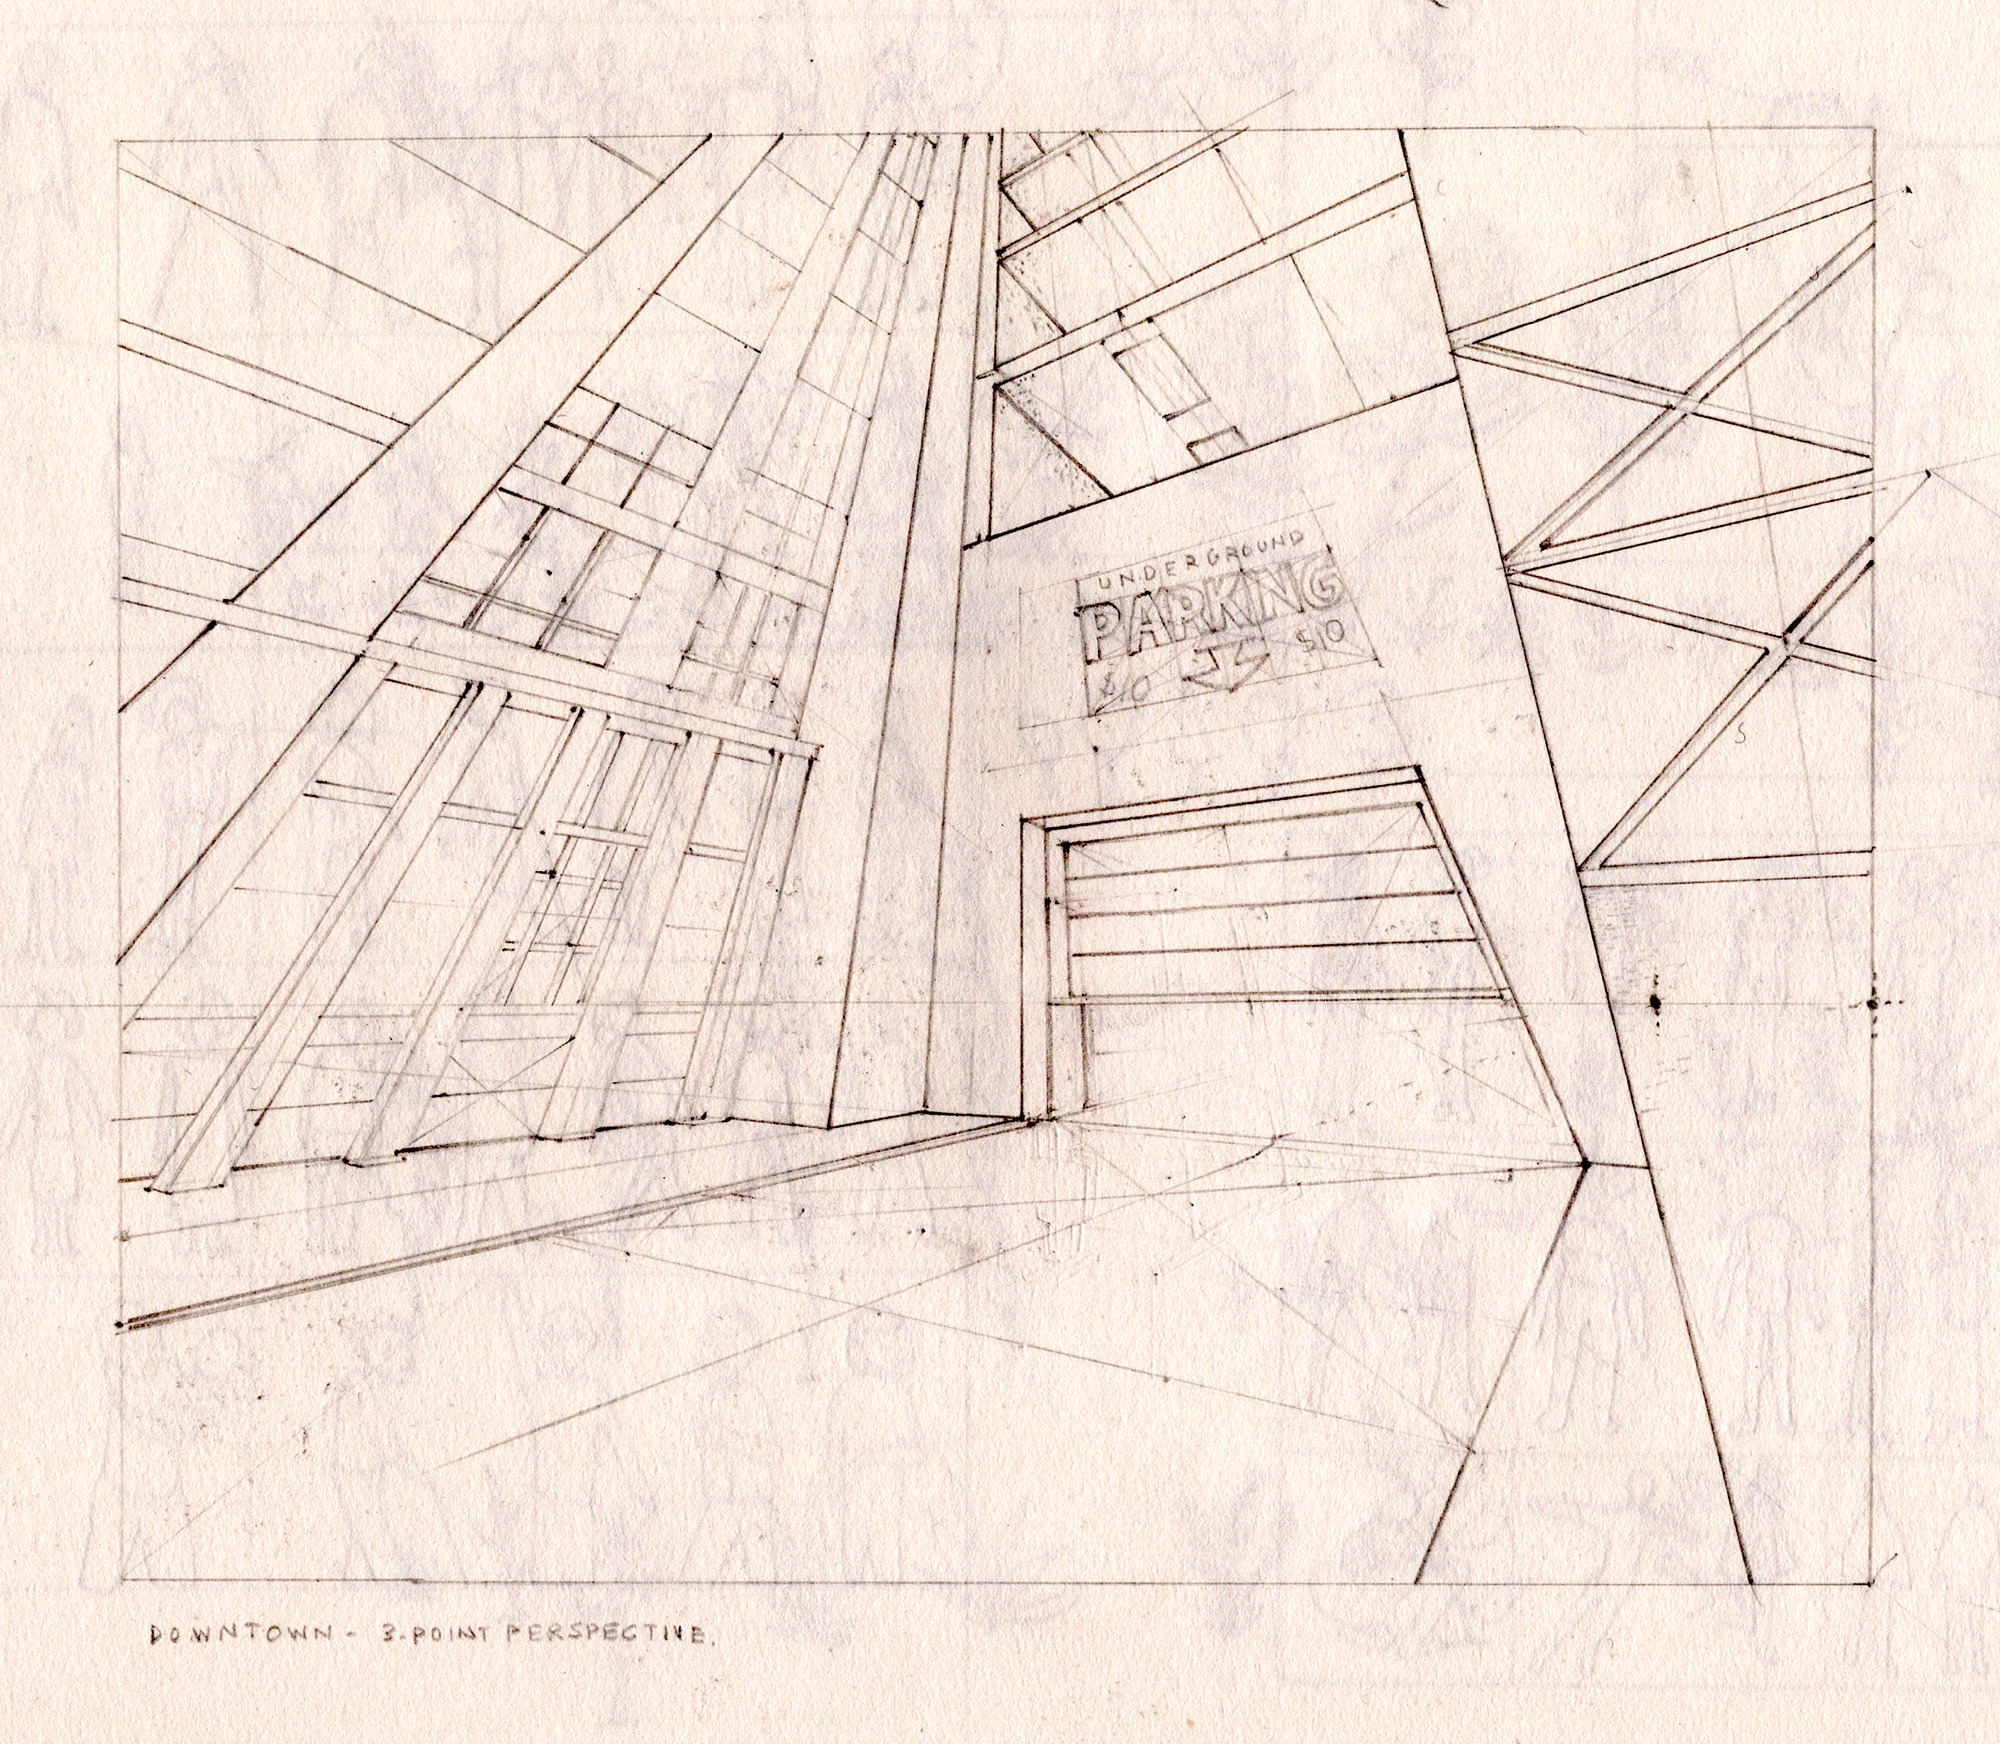 UNDERGROUND
PARKING
$10 $10
DOWNTOWN - 3-POINT PERSPECTIVE.